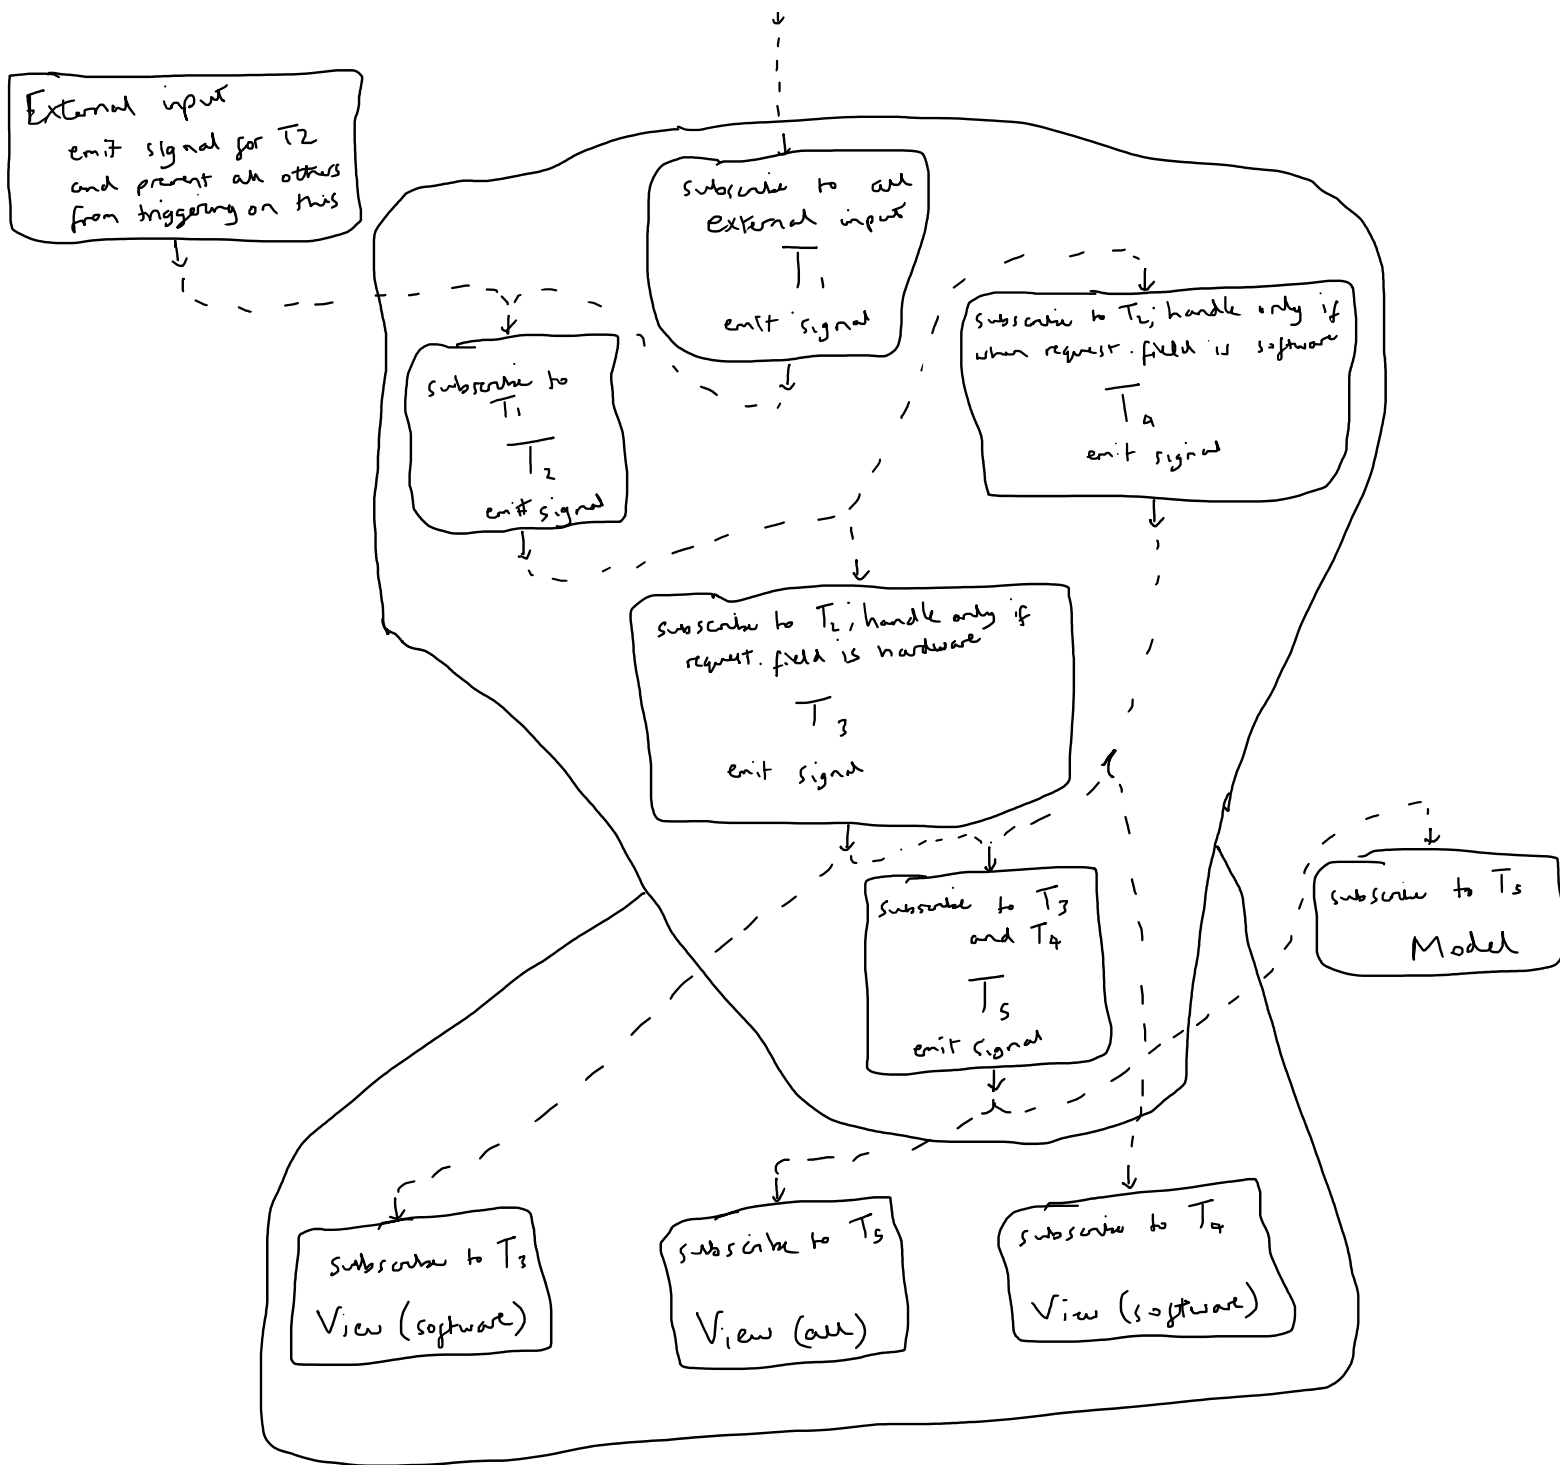 External input
emit signal for T2
and prevent all others
from triggering on this
subscribe to all
external input
T1
emit signal
subscribe to T2; handle only if
when request.field is software
T4
emit signal
subscribe to
T1
T2
emit signal
subscribe to T2; handle only if
request.field is hardware
T3
emit signal
subscribe to T3
and T4
T5
emit signal
subscribe to T5
Model
subscribe to T3
View (software)
subscribe to T5
View (all)
subscribe to T4
View (software)